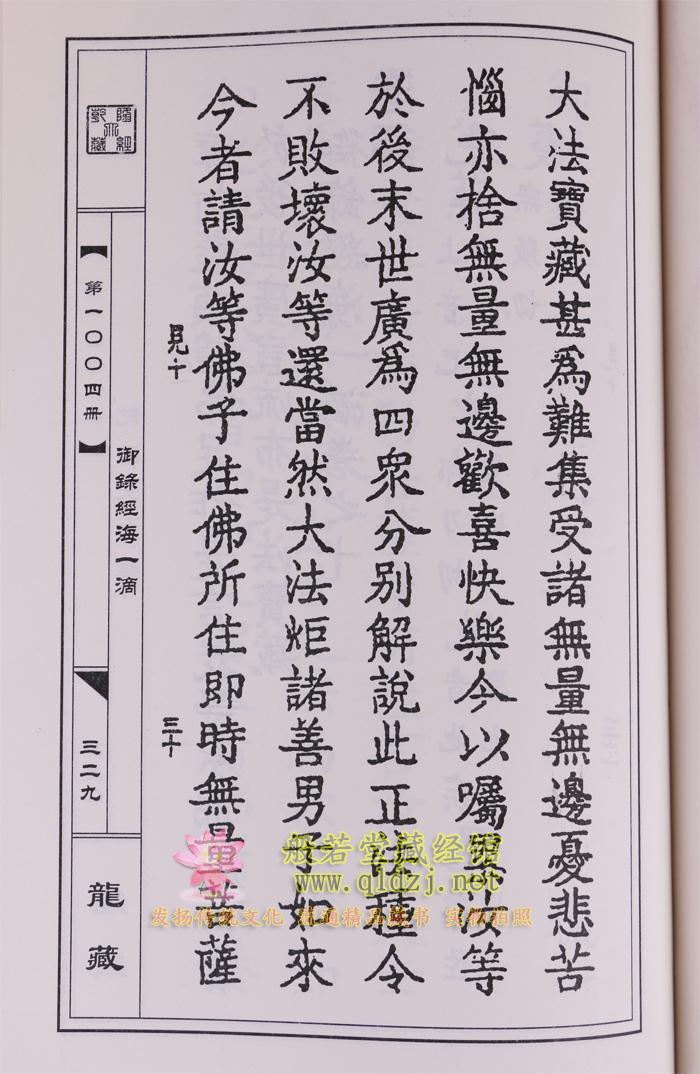 大法寶藏甚爲難集受諸無量無邊憂悲苦
惱亦捨無量無邊歡喜快樂今以囑累汝等
於後末世廣爲四衆分別解說此正法種令
不敗壞汝等還當然大法炬諸善男子如來
今者請汝等佛子住佛所住即時無量菩薩
見十
三十
御錄經海一滴
乾隆大藏經
【第一〇〇四册】
三二九
龍藏
般若堂藏经馆
www.qldzj.net
发扬传统文化 流通精品藏书 实物拍照